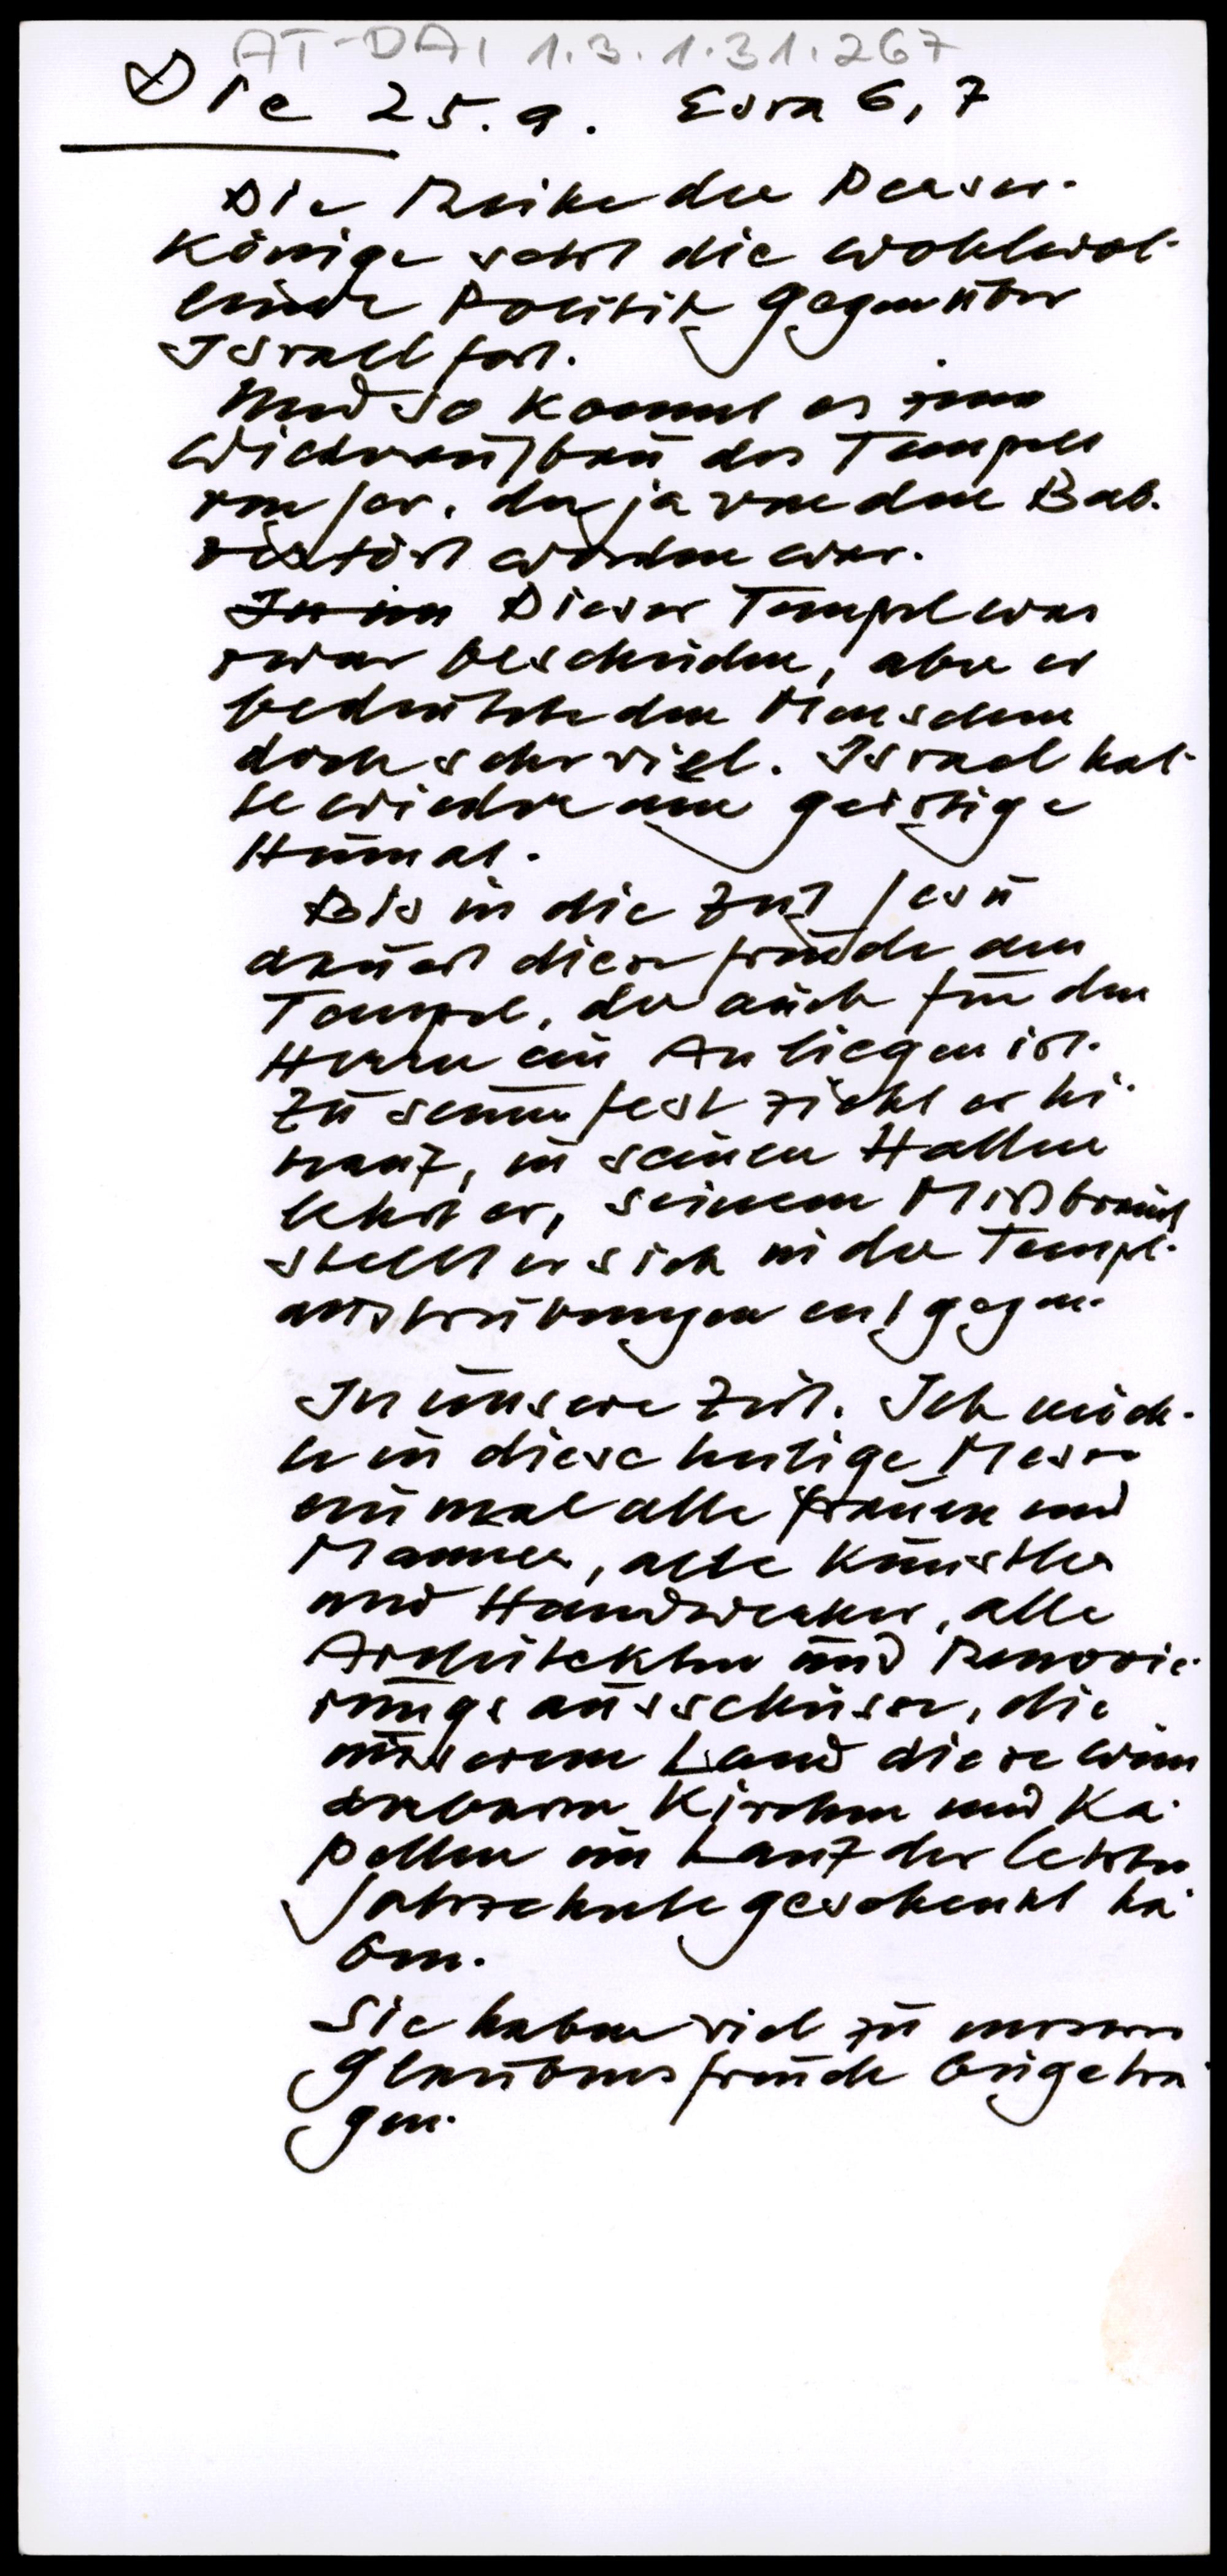 AT-DAI 1.3.1.31.267
Die 25.9. Esra 6,7
Die Reihe der Perser-
könige setzt die wohlwol-
lende Politik gegenüber
Israel fort.
Und so kommt es zum
Wiederaufbau des Tempels
von Jer. der ja von den Bab.
zerstört worden war.
In im Dieser Tempel war
zwar bescheiden, aber er
bedeutete den Menschen
doch sehr viel. Israel hat-
te wieder eine geistige
Heimat.
Bis in die Zeit Jesu
dauert diese Freude am
Tempel, der auch für den
Herrn ein Anliegen ist.
Zu seinem Fest zieht er hi-
nauf, in seinen Hallen
lehrt er, seinem Mißbrauch
stellt er sich in der Tempel-
entgegen.
In unsere Zeit. Ich möch-
te in diese heilige Messe
einmal alle Frauen und
Männer, alle Künstler
und Handwerker, alle
Architekten und Renovie-
rungsausschüsse, die
unserem Land diese wun
derbaren Kirchen und Ka-
pellen im Lauf der letzten
Jahrzehnte geschenkt ha-
ben.
Sie haben viel zu unserer
Glaubensfreude beigetra-
gen.